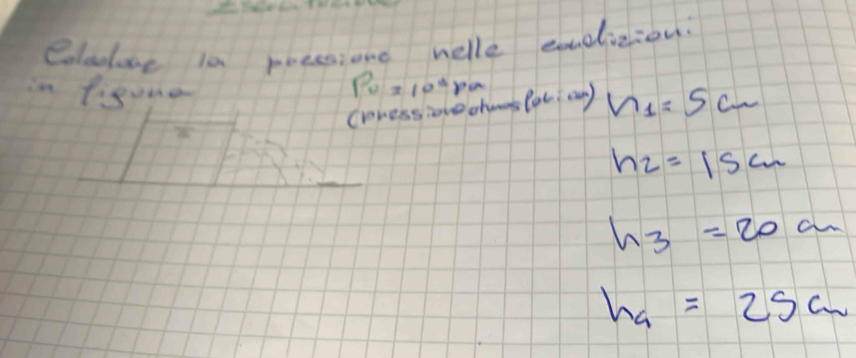 Esercitazione
Calcolare la pressione nelle condizioni
in figura
P₀ = 10⁵ pa
(pressione atmosferica)
h1 = 5 cm
h2 = 15 cm
h3 = 20 cm
h4 = 25 cm